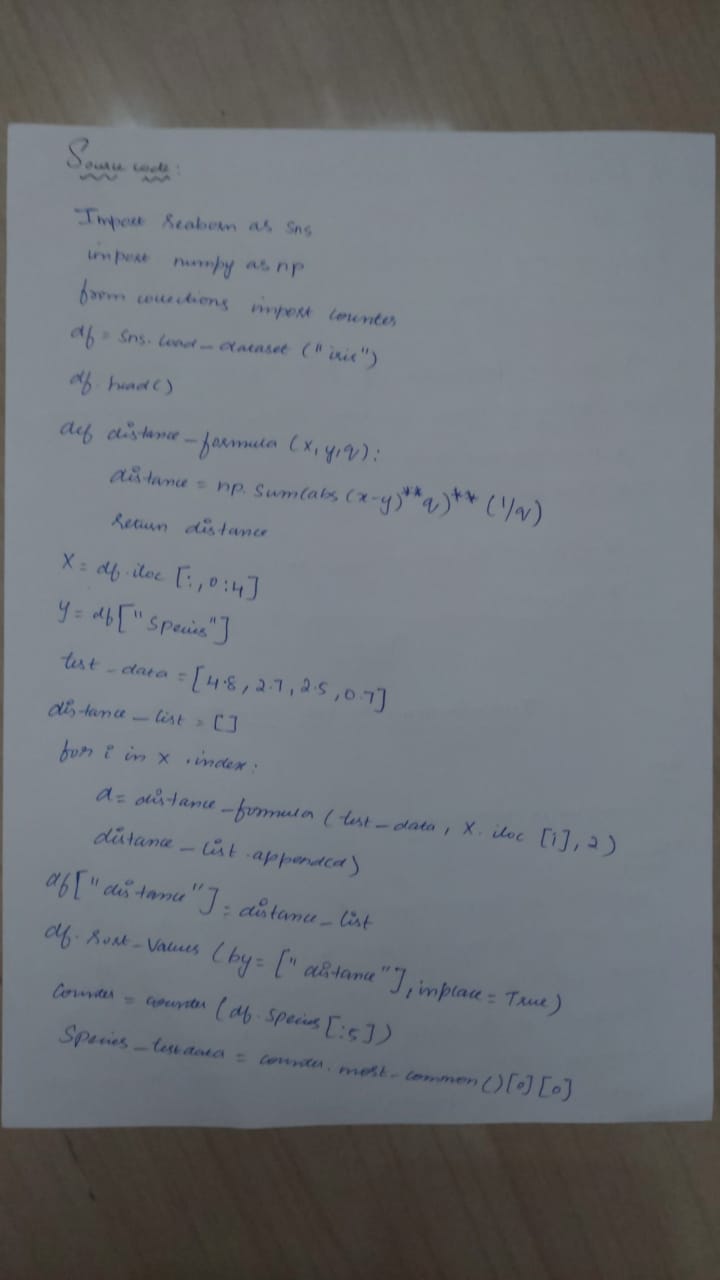 Source code:
Import seaborn as sns
import numpy as np
from collections import counter
df = sns.load_dataset ("iris")
df.head()
def distance_formula (x,y,q):
distance = np.sum(abs (x-y)**q)** (1/q)
return distance
X = df.iloc [:,0:4]
y = df["species"]
test_data = [4.8, 2.7, 2.5, 0.7]
distance_list = []
for i in X.index:
d = distance_formula (test_data, X.iloc [i], 2)
distance_list.append(d)
df["distance"] = distance_list
df.sort_values (by=["distance"], inplace = True)
Counter = counter (df.species [:5])
Species_testdata = counter.most_common()[0][0]